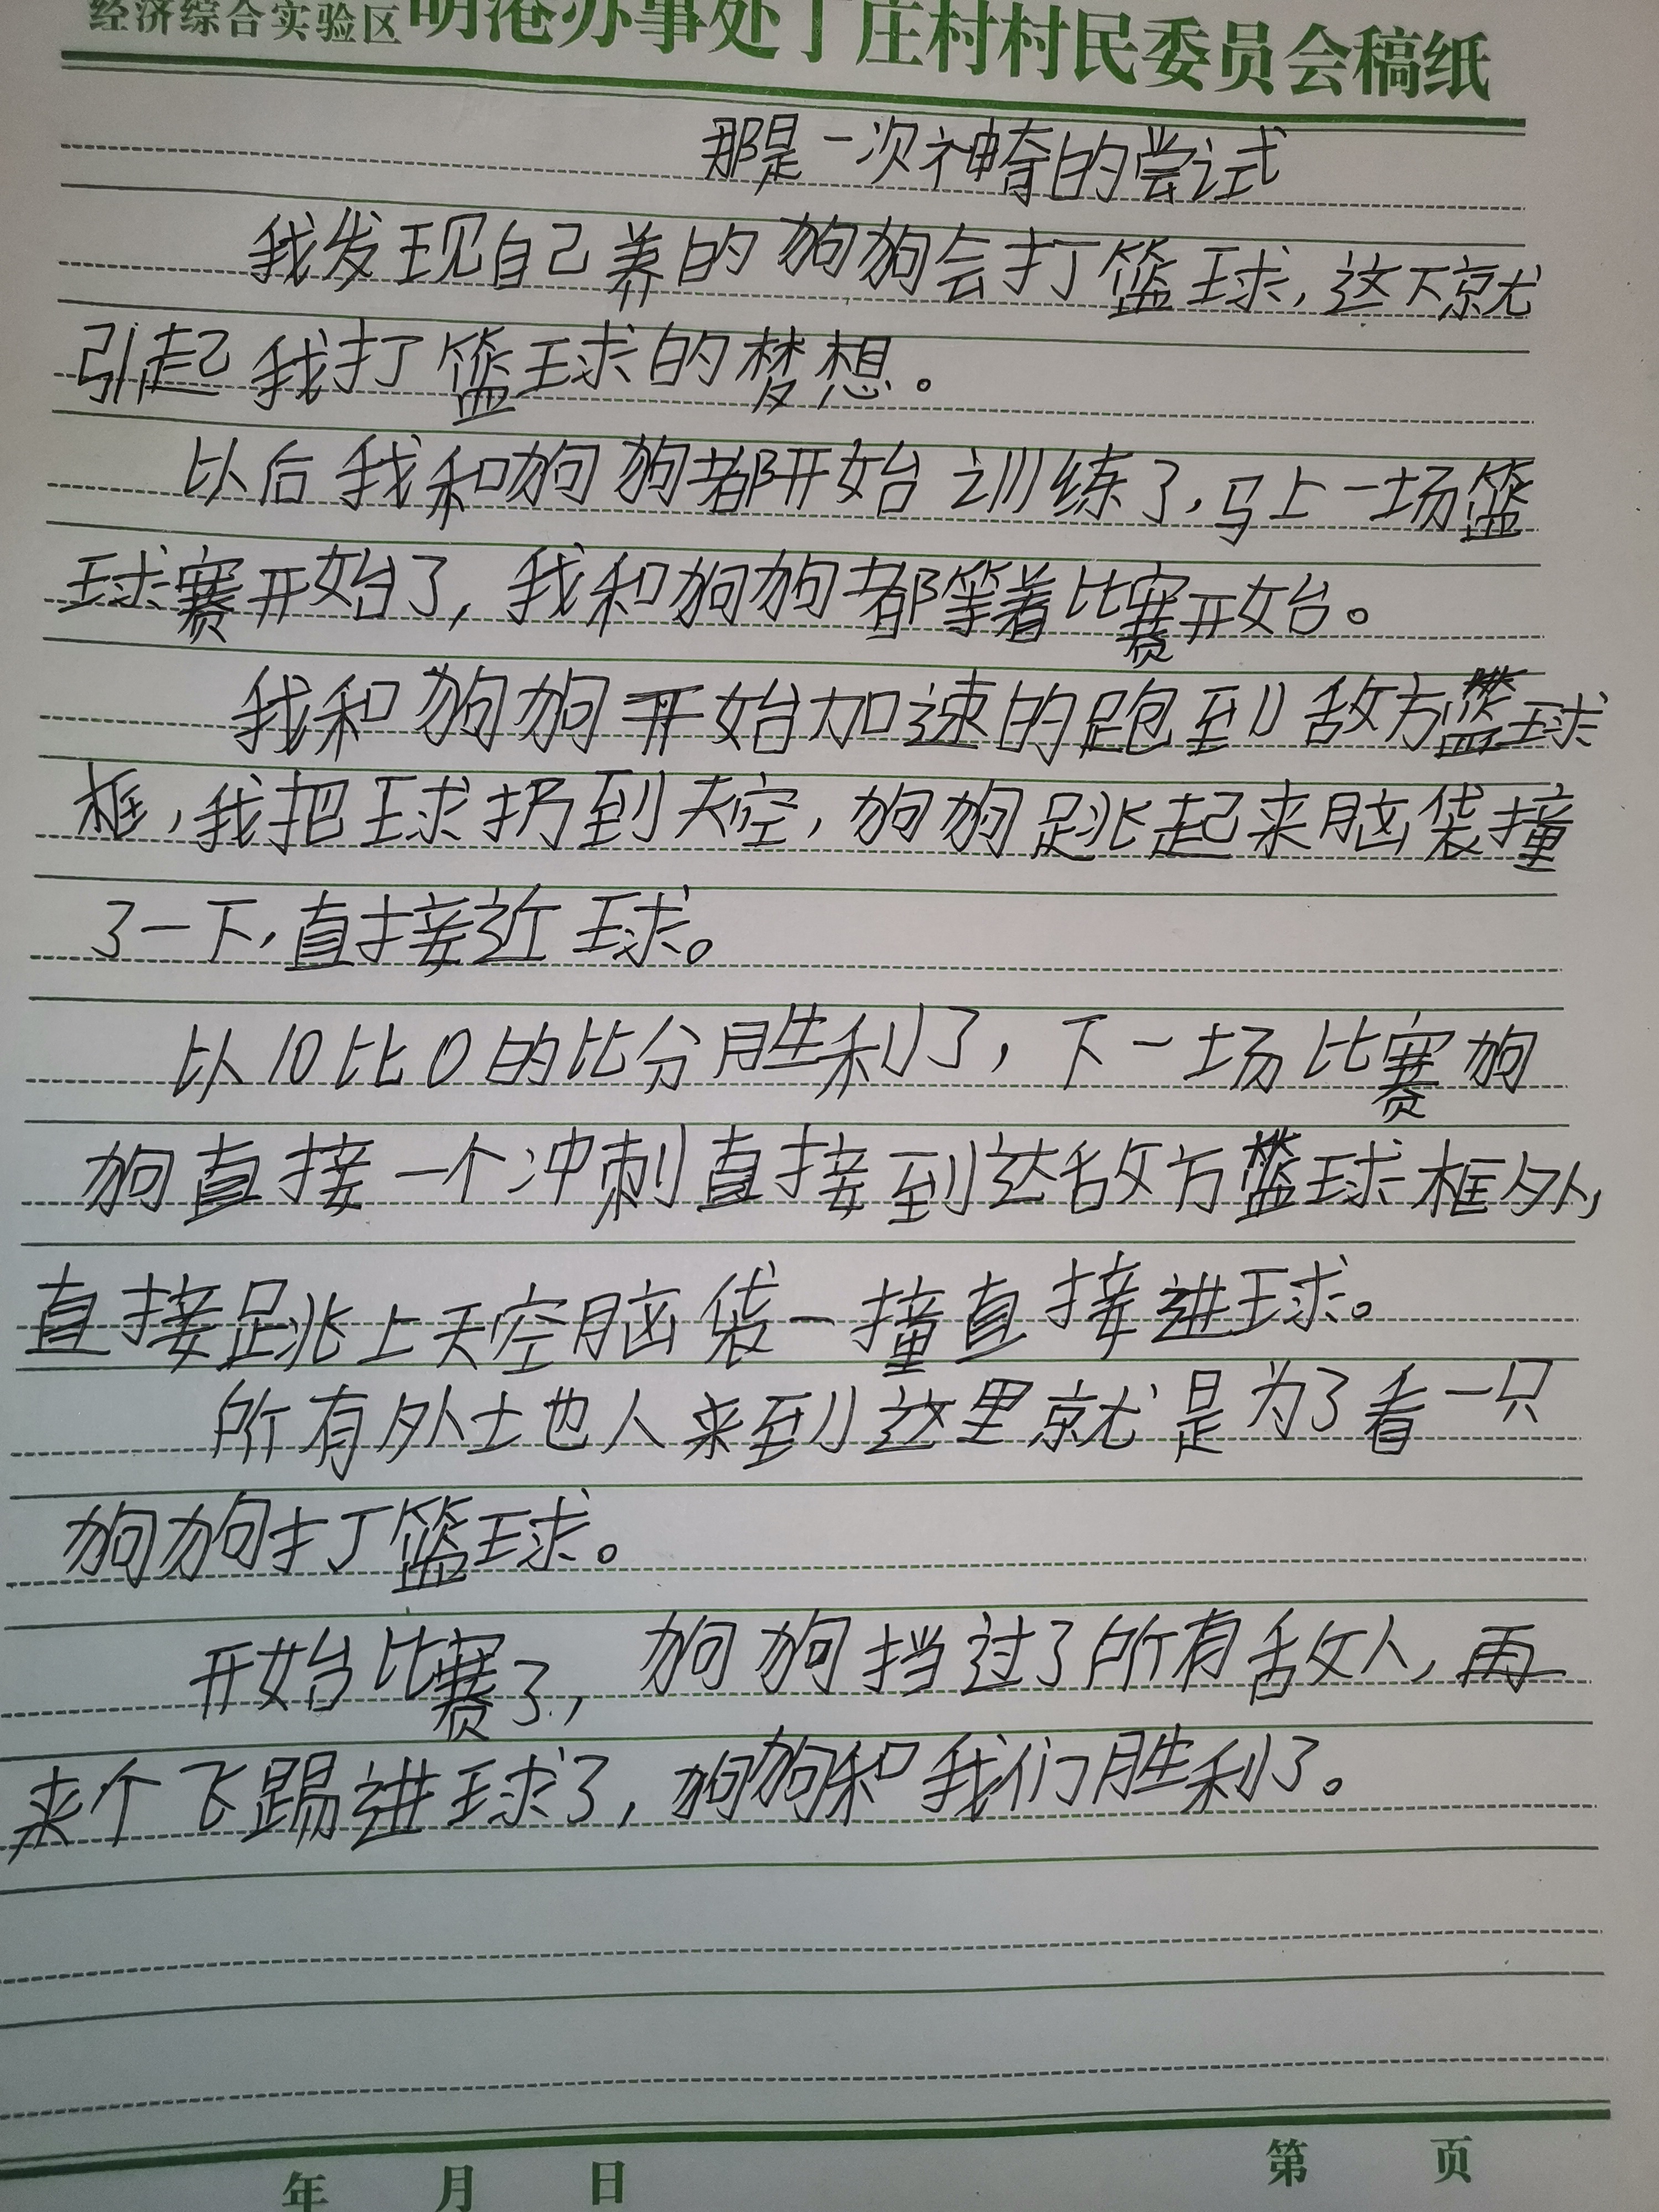 经济综合实验区明港办事处丁庄村村民委员会稿纸
那是一次神奇的尝试
我发现自己养的狗狗会打篮球,这下就
引起我打篮球的梦想。
以后我和狗狗都开始训练了,马上一场篮
球赛开始了,我和狗狗都等着比赛开始。
我和狗狗开始加速的跑到敌方篮球
框,我把球扔到天空,狗狗跳起来脑袋撞
了一下,直接近球。
以10比0的比分胜利了,下一场比赛狗
狗直接一个冲刺直接到达敌方篮球框外,
直接跳上天空脑袋一撞直接进球。
所有外士也人来到这里就是为了看一只
狗狗打篮球。
开始比赛了,狗狗挡过了所有敌人,再
来个飞踢进球了,狗狗和我们胜利了。
年 月 日 第 页